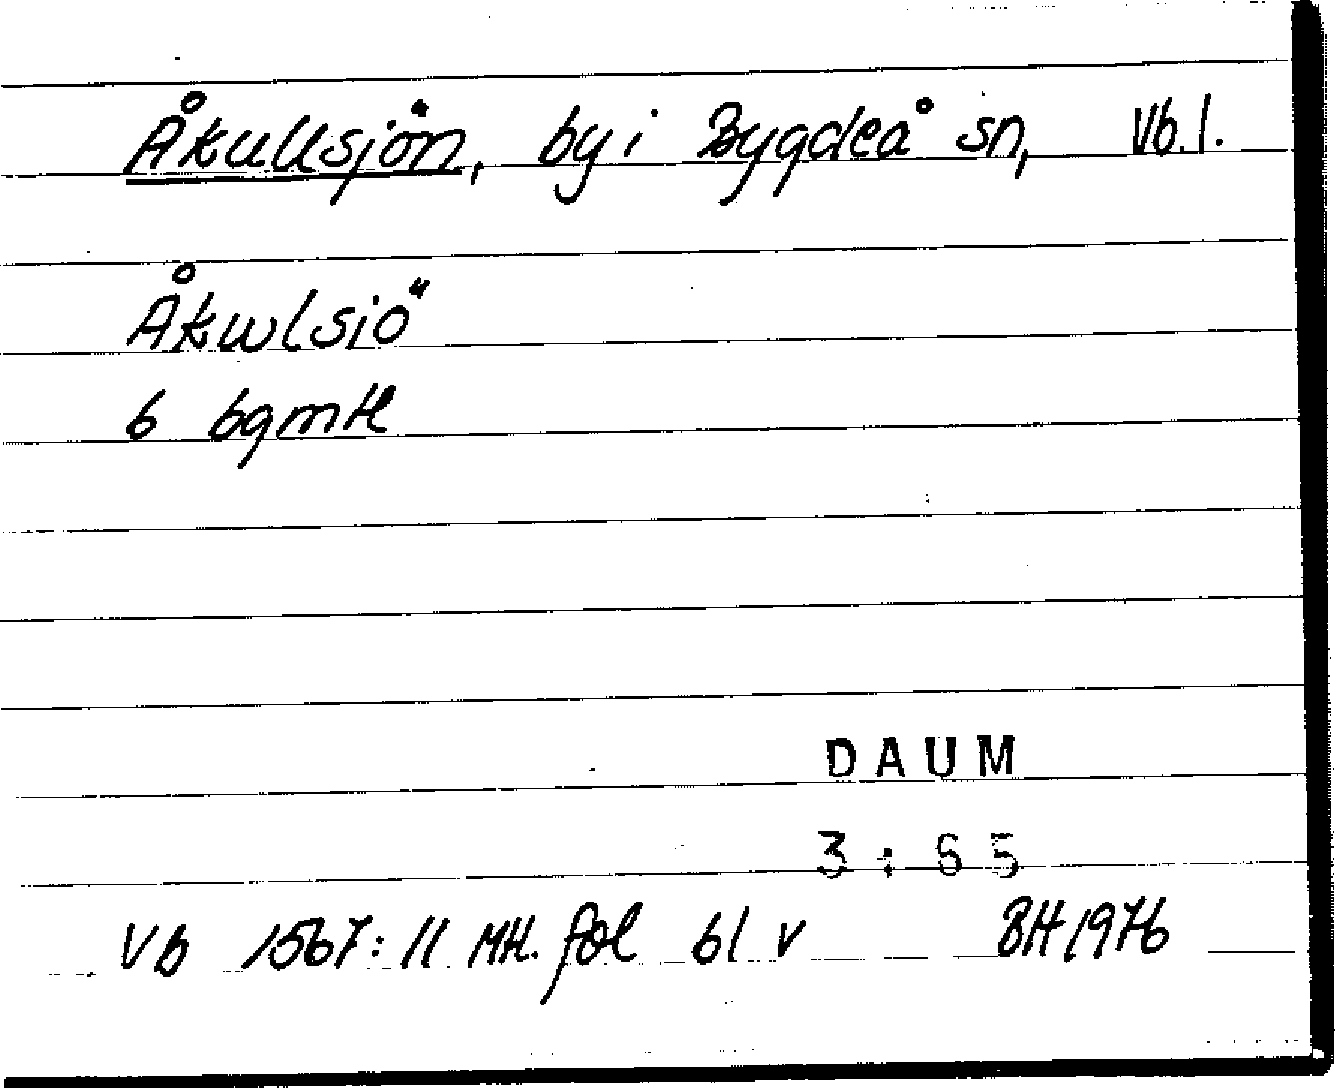 Åkullsjön, by i Bygdeå sn, Vb. l.
Åkwlsiö
6 bgmtl
DAUM
3:65
Vb 1567:11 Mtl. fol 61 v BH 1976